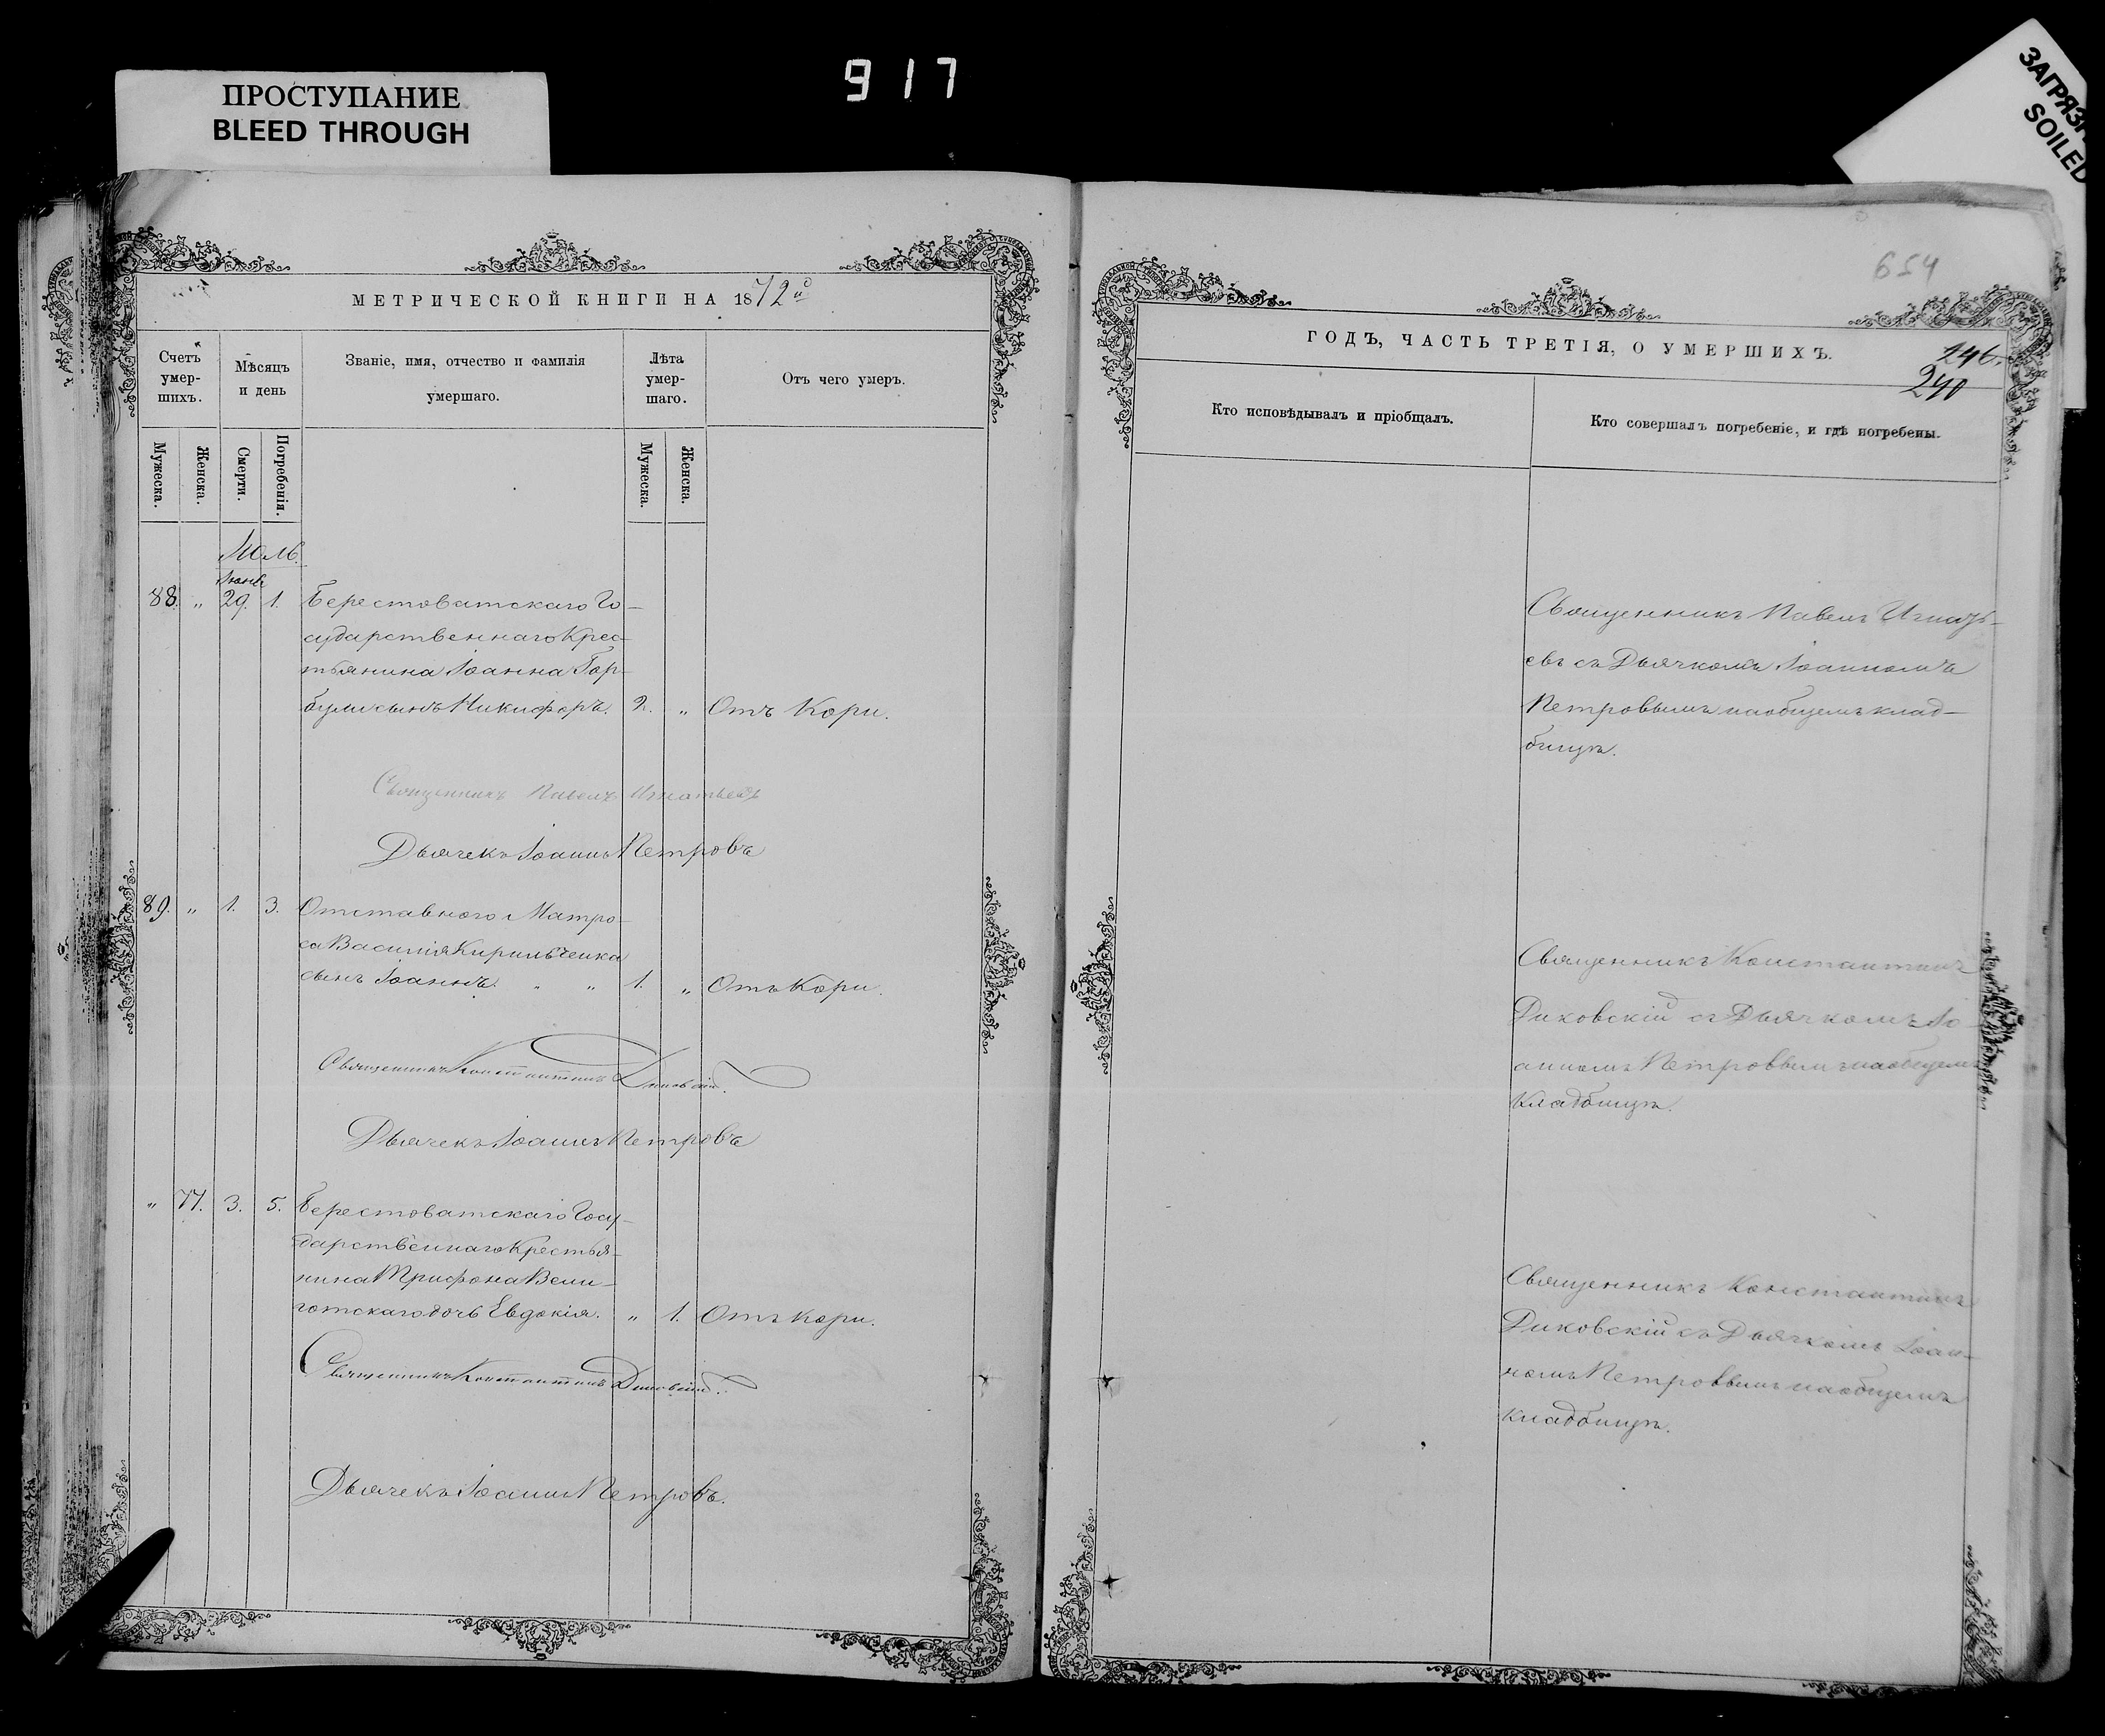 917
ПРОСТУПАНИЕ
BLEED THROUGH
ЗАГРЯЗН
SOILED
МЕТРИЧЕСКОЙ КНИГИ НА 1872й
Счетъ умер-шихъ.
Мѣсяцъ и день
Званіе, имя, отчество и фамилія умершаго.
Лѣта умер-шаго.
Отъ чего умеръ.
Мужеска.
Женска.
Смерти.
Погребенія.
Мужеска.
Женска.
Іюль.
Іюнь
88. „ 29. 1. Берестоватскаго Го-
сударственнаго Крес-
тьянина Іоанна Гор-
були сынъ Никифоръ. 2. „ Отъ Кори.
Священникъ Павелъ Игнатьевъ
Дьячекъ Іоаннъ Петровъ
89. „ 1. 3. Отставного Матро-
са Василія Кирильченка
сынъ Іоаннъ. „ „ 1. „ Отъ Кори.
Священникъ Константинъ Диковскій.
Дьячекъ Іоаннъ Петровъ
„ 77. 3. 5. Берестоватскаго Госу-
дарственнаго Крестья-
нина Трифона Вели-
готскаго дочь Евдокія. „ 1. Отъ Кори.
Священникъ Константинъ Диковскій.
Дьячекъ Іоаннъ Петровъ.
654
ГОДЪ, ЧАСТЬ ТРЕТІЯ, О УМЕРШИХЪ.
246.
240
Кто исповѣдывалъ и пріобщалъ.
Кто совершалъ погребеніе, и гдѣ погребены.
Священникъ Павелъ Игнать-
евъ съ Дьячкомъ Іоанномъ
Петровымъ на общемъ клад-
бищѣ.
Священникъ Константинъ
Диковскій съ Дьячкомъ Іо-
анномъ Петровымъ на общемъ
Кладбищѣ.
Священникъ Константинъ
Диковскій съ Дьячкомъ Іоан-
номъ Петровымъ на общемъ
кладбищѣ.